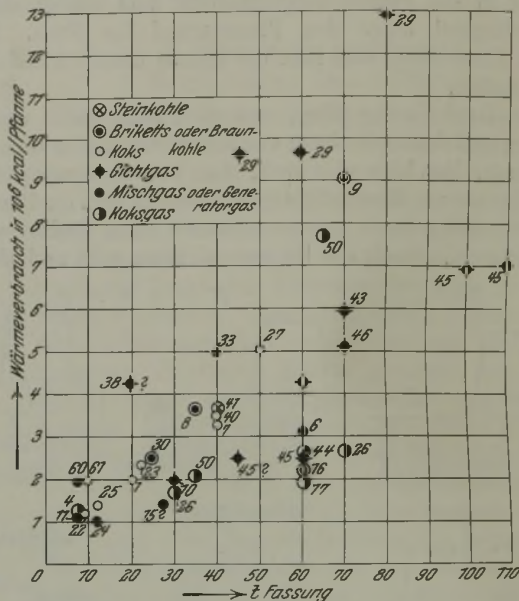 13
12
11
10
9
8
7
6
5
4
3
2
1
0
Wärmeverbrauch in 10⁶ kcal/Pfanne
Steinkohle
Briketts oder Braun-
kohle
Koks
Gichtgas
Mischgas oder Gene-
ratorgas
Koksgas
29
29
29
9
50
45
45
43
46
33
27
38 ?
47
40
7
8
6
30
23
44
26
45 ?
45
16
17
60 61
7
50
10
26
25
4
11
22
24
15 ?
10 20 30 40 50 60 70 80 90 100 110
t Fassung